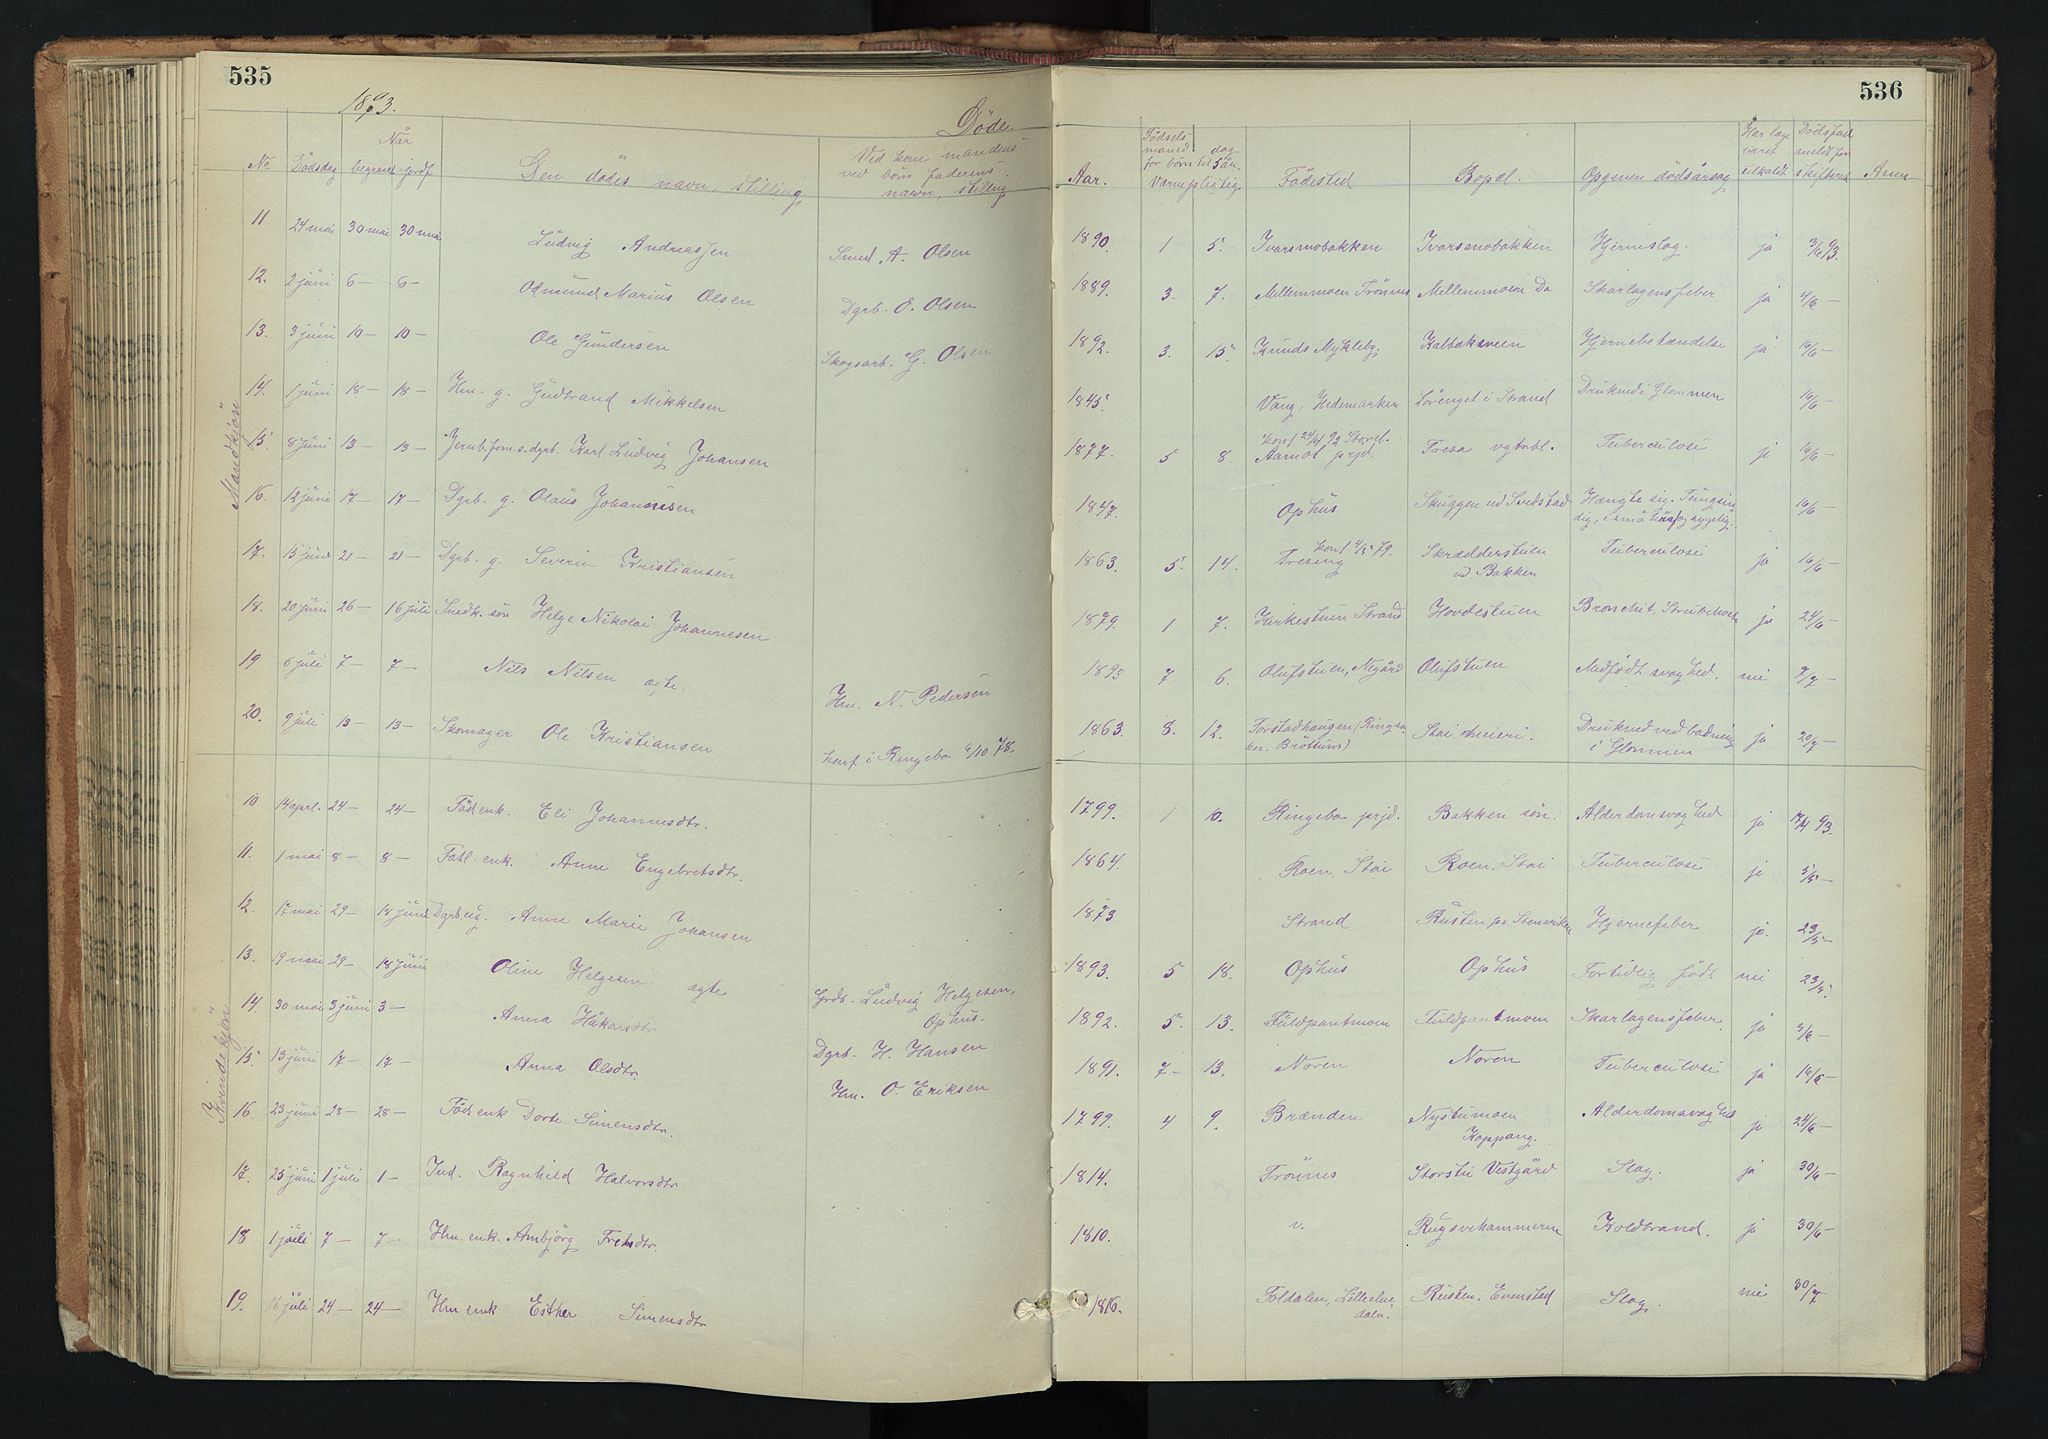 535
1893.
Döde.
No
Dödsdag
Når
begravet
jordf
Den dødes navn, stilling
Ved kone mandens
ved børn faderens
navn, stilling
Mandkjön
11 24 mai 30 mai 30 mai Ludvig Andreassen Smed A. Olsen
12. 2 juni 6 — 6 — Odmund Marius Olsen Dgrb. O. Olsen
13. 3 juni 10 — 10 — Ole Gundersen Skogsarb. G. Olsen
14. 1 juni 18 — 18 — Hm. g. Gudbrand Mikkelsen
15. 8 juni 13 — 13 — Jernb.form.s.dgrb. Karl Ludvig Johansen
16. 12 juni 17 — 17 — Dgrb. g. Olaus Johannesen
17. 15 juni 21 — 21 — Dgrb. g. Severin Kristiansen
18. 20 juni 26 — 16 juli Snedk. søn Helge Nikolai Johannesen
19 6 juli 7 — 7 — Nils Nilsen ægte. Hm. N. Pedersen
20. 9 juli 13 — 13 — Skomager Ole Kristiansen konf i Ringebo 6/10 78.
Kvindekjön
10 14 april. 24 — 24 — Föd enk. Eli Johannesdtr.
11. 1 mai 8 — 8 — Fatl. enk. Anne Engebretsdtr.
12. 17 mai 29 — 18 juni Dgrb ug. Anne Marie Johansen
13. 19 mai 29 — 18 juni Oline Helgesen ægte Grdb. Ludvig Helgesen,
Ophus.
14. 30 mai 3 juni 3 — Anna Håkonsdtr. Dgrb. H. Hansen
15 13 juni 17 — 17 — Anna Olsdtr. Hm. O. Eriksen
16. 23 juni 28 — 28 — Föd enk Dorte Simensdtr.
17. 25 juni 1 juli 1 — Ind. Ragnhild Halvorsdtr
18 1 juli 7 — 7 — Hm. enk. Ambjörg
19. 16 juli 24 — 24 — Hm enk Esther Simensdtr
536
Aar.
Födsels
maned dag
for børn til 5 år.
Værnepligtig
Födested
Bopæl.
Opgiven dödsårsag
Har læge
været
tilkaldt
Dödsfald
meldt for
skifteret
Anm
1890. 1 5. Ivarsmobakken Ivarsmobakken Hjerneslag. ja 3/6 93.
1889. 3. 7. Mellemmoen Trönnes Mellemmoen Do Skarlagensfeber ja 4/6 —
1892. 3. 15 Kunds Mykleby. Kalbaksveen Hjernebetændelse ja 10/6 —
1845 Vang, Hedemarken Lörenget i Strand Druknedi Glommen 10/6 —
1877. 5 8. konf 24/4 92 Storel.
Aamot prjd. Tresa vgtrbl. Tuberculosi ja 10/6 —
1847. Ophus Skuggen ud Svedstad Hængte sig. Tungsin
dig, i små kår og sygelig. 16/6 —
1863. 5. 14. konf 4/5 79.
Tresing Skrædderstuen
ud Bakken Tuberculosi ja 16/6 —
1879. 1 7. Kirkestuen Strand Hovdestuen Bronchit, Strubehoste ja 24/6 —
1893 7 6. Olufstuen, Negård Olufstuen Medfödt svaghed. nei 7/7 —
1863. 8. 12. Forstadhaugen (Ringsa
ker. Bröttum) Stai meieri. Druknet ved badning
i Glommen ja 20/7 —
1799. 1 10. Ringebo prjd. Bakken søn: Alderdomsvaghed ja 17/4 93.
1864. Roen, Stai Roen, Stai Tuberculosi ja 5/5 —
1873 Strand Rusten pr Stenviken Hjernefeber ja. 23/5 —
1893. 5 18. Ophus Ophus Fortidlig födt nei 23/5.
1892. 5. 13. Fuldpantmoen Fuldpantmoen Skarlagensfeber. ja 3/6 —
1891. 7 — 13. Noren Noren Tuberculosi ja 16/6 —
1799. 4 9. Brænden Nystumoen
Koppang. Alderdomsvaghed ja 24/6 —
1814. Trönnes Storstu Vestgård Slag. ja 30/6 —
1810. Rugsvehammeren Koldbrand. ja 30/6 —
1816. Foldalen, Lilleelve
dalen. Rusten. Evenstad Slag. nei 30/7